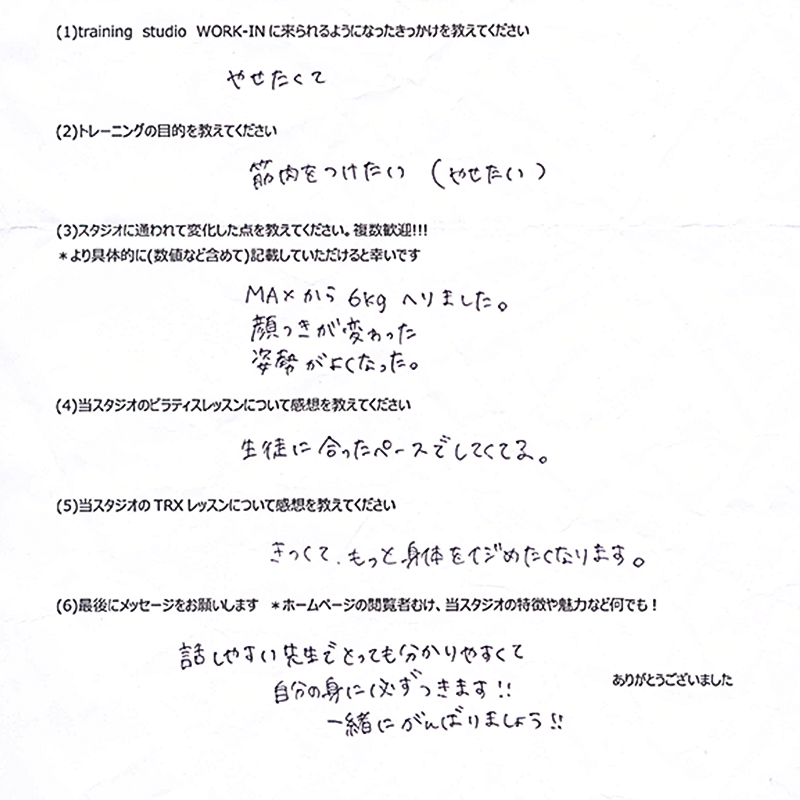 (1)training studio WORK-INに来られるようになったきっかけを教えてください
やせたくて
(2)トレーニングの目的を教えてください
筋肉をつけたい (やせたい)
(3)スタジオに通われて変化した点を教えてください。複数歓迎!!!
*より具体的に(数値など含めて)記載していただけると幸いです
MAXから 6kg へりました。
顔つきが変わった
姿勢がよくなった。
(4)当スタジオのピラティスレッスンについて感想を教えてください
生徒に合ったペースでしてくてる。
(5)当スタジオの TRX レッスンについて感想を教えてください
きつくて、もっと身体をイジめたくなります。
(6)最後にメッセージをお願いします *ホームページの閲覧者むけ、当スタジオの特徴や魅力など何でも!
話しやすい先生でとっても分かりやすくて
自分の身に必ずつきます!!
一緒にがんばりましょう!!
ありがとうございました